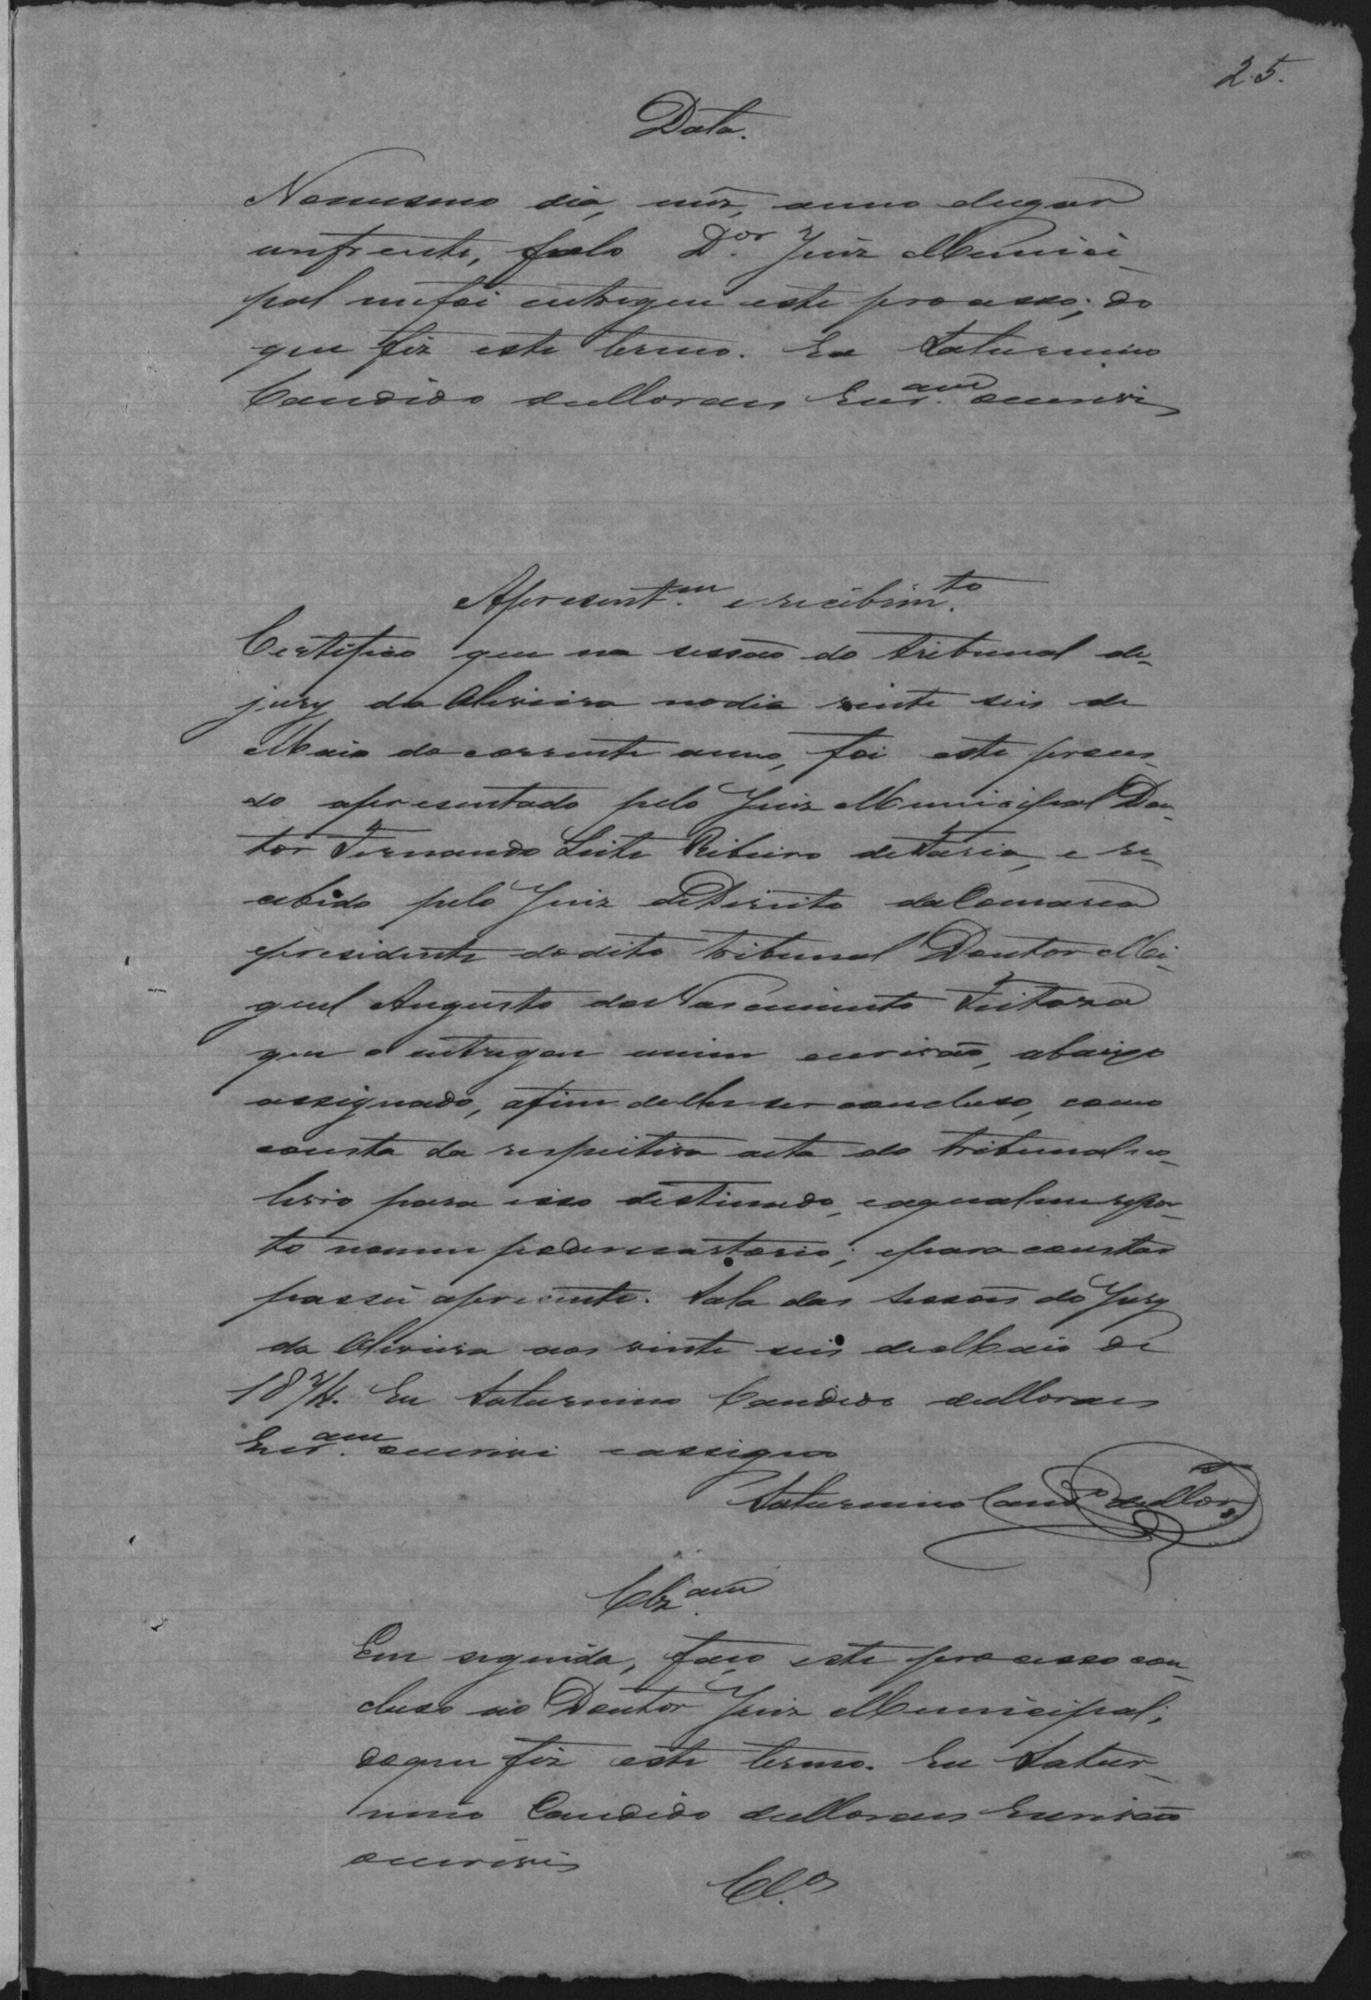 25.
Data.
No mesmo dia, mez, anno e lugar
emfrente, pelo D.or Juiz Munici-
pal me foi entregue este processo; do
que fiz este termo. Eu Saturnino
Candido de Moraes Escr.am o escrevi
Apresent.am e recebim.to
Certifico que na sessão do tribunal do
jury da Oliveira no dia vinte seis de
Maio do corrente anno, foi este proces-
so apresentado pelo Juiz Municipal Dou-
tor Fernando Leite Ribeiro de Faria, e re-
cebido pelo Juiz de Direito da Comarca
e presidente do dito tribunal Doutor Mi-
guel Augusto do Nascimento Feitosa
que o entregou a mim escrivão, abaixo
assignado, afim de lhe ser concluso, como
consta da respectiva acta do tribunal no
livro para isso destinado, e a qual me repor-
to no meu poder e cartorio; e para constar
passei a presente. Sala das sessões do Jury
da Oliveira aos vinte seis de Maio de
1874. Eu Saturnino Candido de Moraes
Escr.am o escrevi e assigno
Saturnino Cand.o de Mor.s
Clz.am
Em seguida, faço este processo con-
cluso ao Doutor Juiz Municipal;
do que fiz este termo. Eu Satur-
nino Candido de Moraes Escrivão
o escrevi
Cl.os